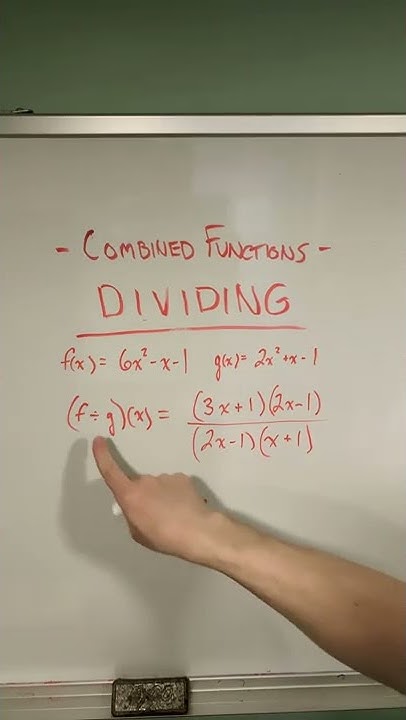 - COMBINED FUNCTIONS -
DIVIDING
f(x) = 6x² - x - 1 g(x) = 2x² + x - 1
(f ÷ g)(x) = (3x + 1)(2x - 1)
(2x - 1)(x + 1)